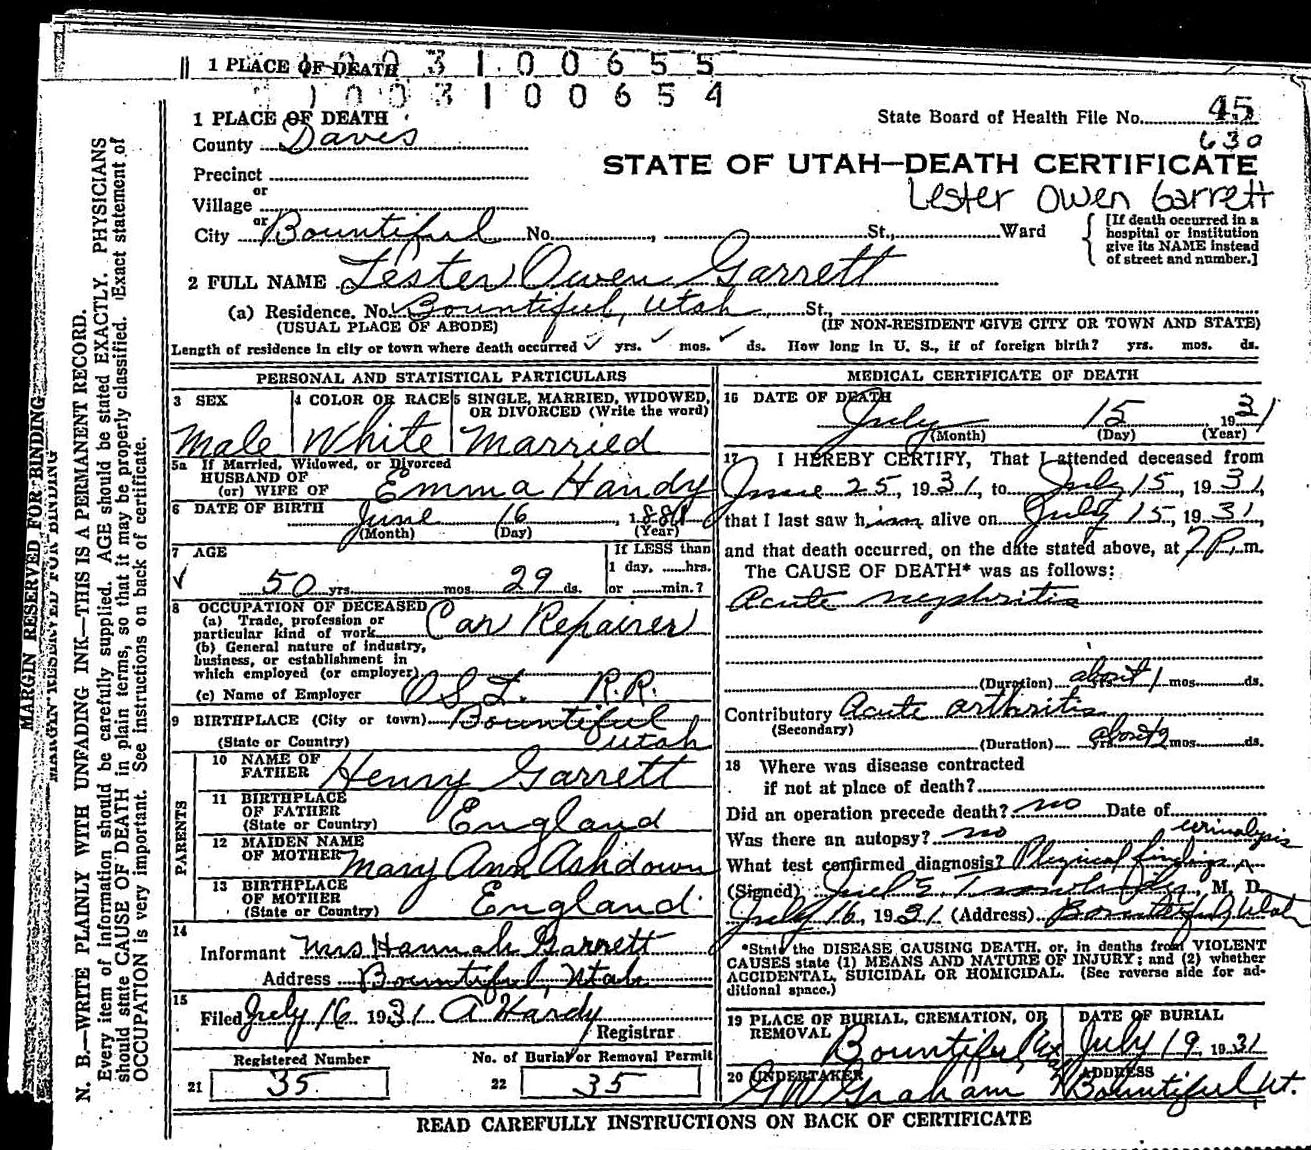 1 PLACE OF DEATH
1 0 0 3 1 0 0 6 5 5
1 0 0 3 1 0 0 6 5 4
1 PLACE OF DEATH
County Davis
Precinct
or
Village
or
City Bountiful No. , St., Ward
State Board of Health File No. 45
630
STATE OF UTAH—DEATH CERTIFICATE
Lester Owen Garrett
[If death occurred in a
hospital or institution
give its NAME instead
of street and number.]
2 FULL NAME Lester Owen Garrett
(a) Residence. No. Bountiful, Utah St.,
(USUAL PLACE OF ABODE) (IF NON-RESIDENT GIVE CITY OR TOWN AND STATE)
Length of residence in city or town where death occurred ✓ yrs. ✓ mos. ✓ ds. How long in U. S., if of foreign birth? yrs. mos. ds.
PERSONAL AND STATISTICAL PARTICULARS
3 SEX
Male
4 COLOR OR RACE
White
5 SINGLE, MARRIED, WIDOWED,
OR DIVORCED (Write the word)
Married
5a If Married, Widowed, or Divorced
HUSBAND OF
(or) WIFE OF Emma Handy
6 DATE OF BIRTH June 16, 1881
(Month) (Day) (Year)
7 AGE
✓ 50 yrs. mos. 29 ds.
If LESS than
1 day, hrs.
or min.?
8 OCCUPATION OF DECEASED
(a) Trade, profession or
particular kind of work Car Repairer
(b) General nature of industry,
business, or establishment in
which employed (or employer)
(c) Name of Employer O S L R.R.
9 BIRTHPLACE (City or town) Bountiful
(State or Country) Utah
PARENTS
10 NAME OF
FATHER Henry Garrett
11 BIRTHPLACE
OF FATHER
(State or Country) England
12 MAIDEN NAME
OF MOTHER Mary Ann Ashdown
13 BIRTHPLACE
OF MOTHER
(State or Country) England
14
Informant Mrs Hannah Garrett
Address Bountiful, Utah
15
Filed July 16 1931 A Hardy
Registrar
Registered Number
21 35
No. of Burial or Removal Permit
22 35
MEDICAL CERTIFICATE OF DEATH
16 DATE OF DEATH
July 15 1931
(Month) (Day) (Year)
17 I HEREBY CERTIFY, That I attended deceased from
June 25, 1931, to July 15, 1931,
that I last saw him alive on July 15, 1931,
and that death occurred, on the date stated above, at 7 P. m.
The CAUSE OF DEATH* was as follows:
Acute nephritis
(Duration) yrs. about 1 mos. ds.
Contributory Acute arthritis
(Secondary)
(Duration) yrs. about 2 mos. ds.
18 Where was disease contracted
if not at place of death?
Did an operation precede death? no Date of
Was there an autopsy? no
urinalysis
What test confirmed diagnosis? Physical findings ^
(Signed) , M. D.
July 16, 1931 (Address) Bountiful, Utah
*State the DISEASE CAUSING DEATH, or, in deaths from VIOLENT
CAUSES state (1) MEANS AND NATURE OF INJURY; and (2) whether
ACCIDENTAL, SUICIDAL OR HOMICIDAL. (See reverse side for ad-
ditional space.)
19 PLACE OF BURIAL, CREMATION, OR
REMOVAL Bountiful
DATE OF BURIAL
July 19, 1931
20 UNDERTAKER
GW Graham
ADDRESS
Bountiful Ut.
READ CAREFULLY INSTRUCTIONS ON BACK OF CERTIFICATE
MARGIN RESERVED FOR BINDING
MARGIN RESERVED FOR BINDING
N. B.—WRITE PLAINLY WITH UNFADING INK—THIS IS A PERMANENT RECORD.
Every item of information should be carefully supplied. AGE should be stated EXACTLY. PHYSICIANS
should state CAUSE OF DEATH in plain terms, so that it may be properly classified. Exact statement of
OCCUPATION is very important. See instructions on back of certificate.